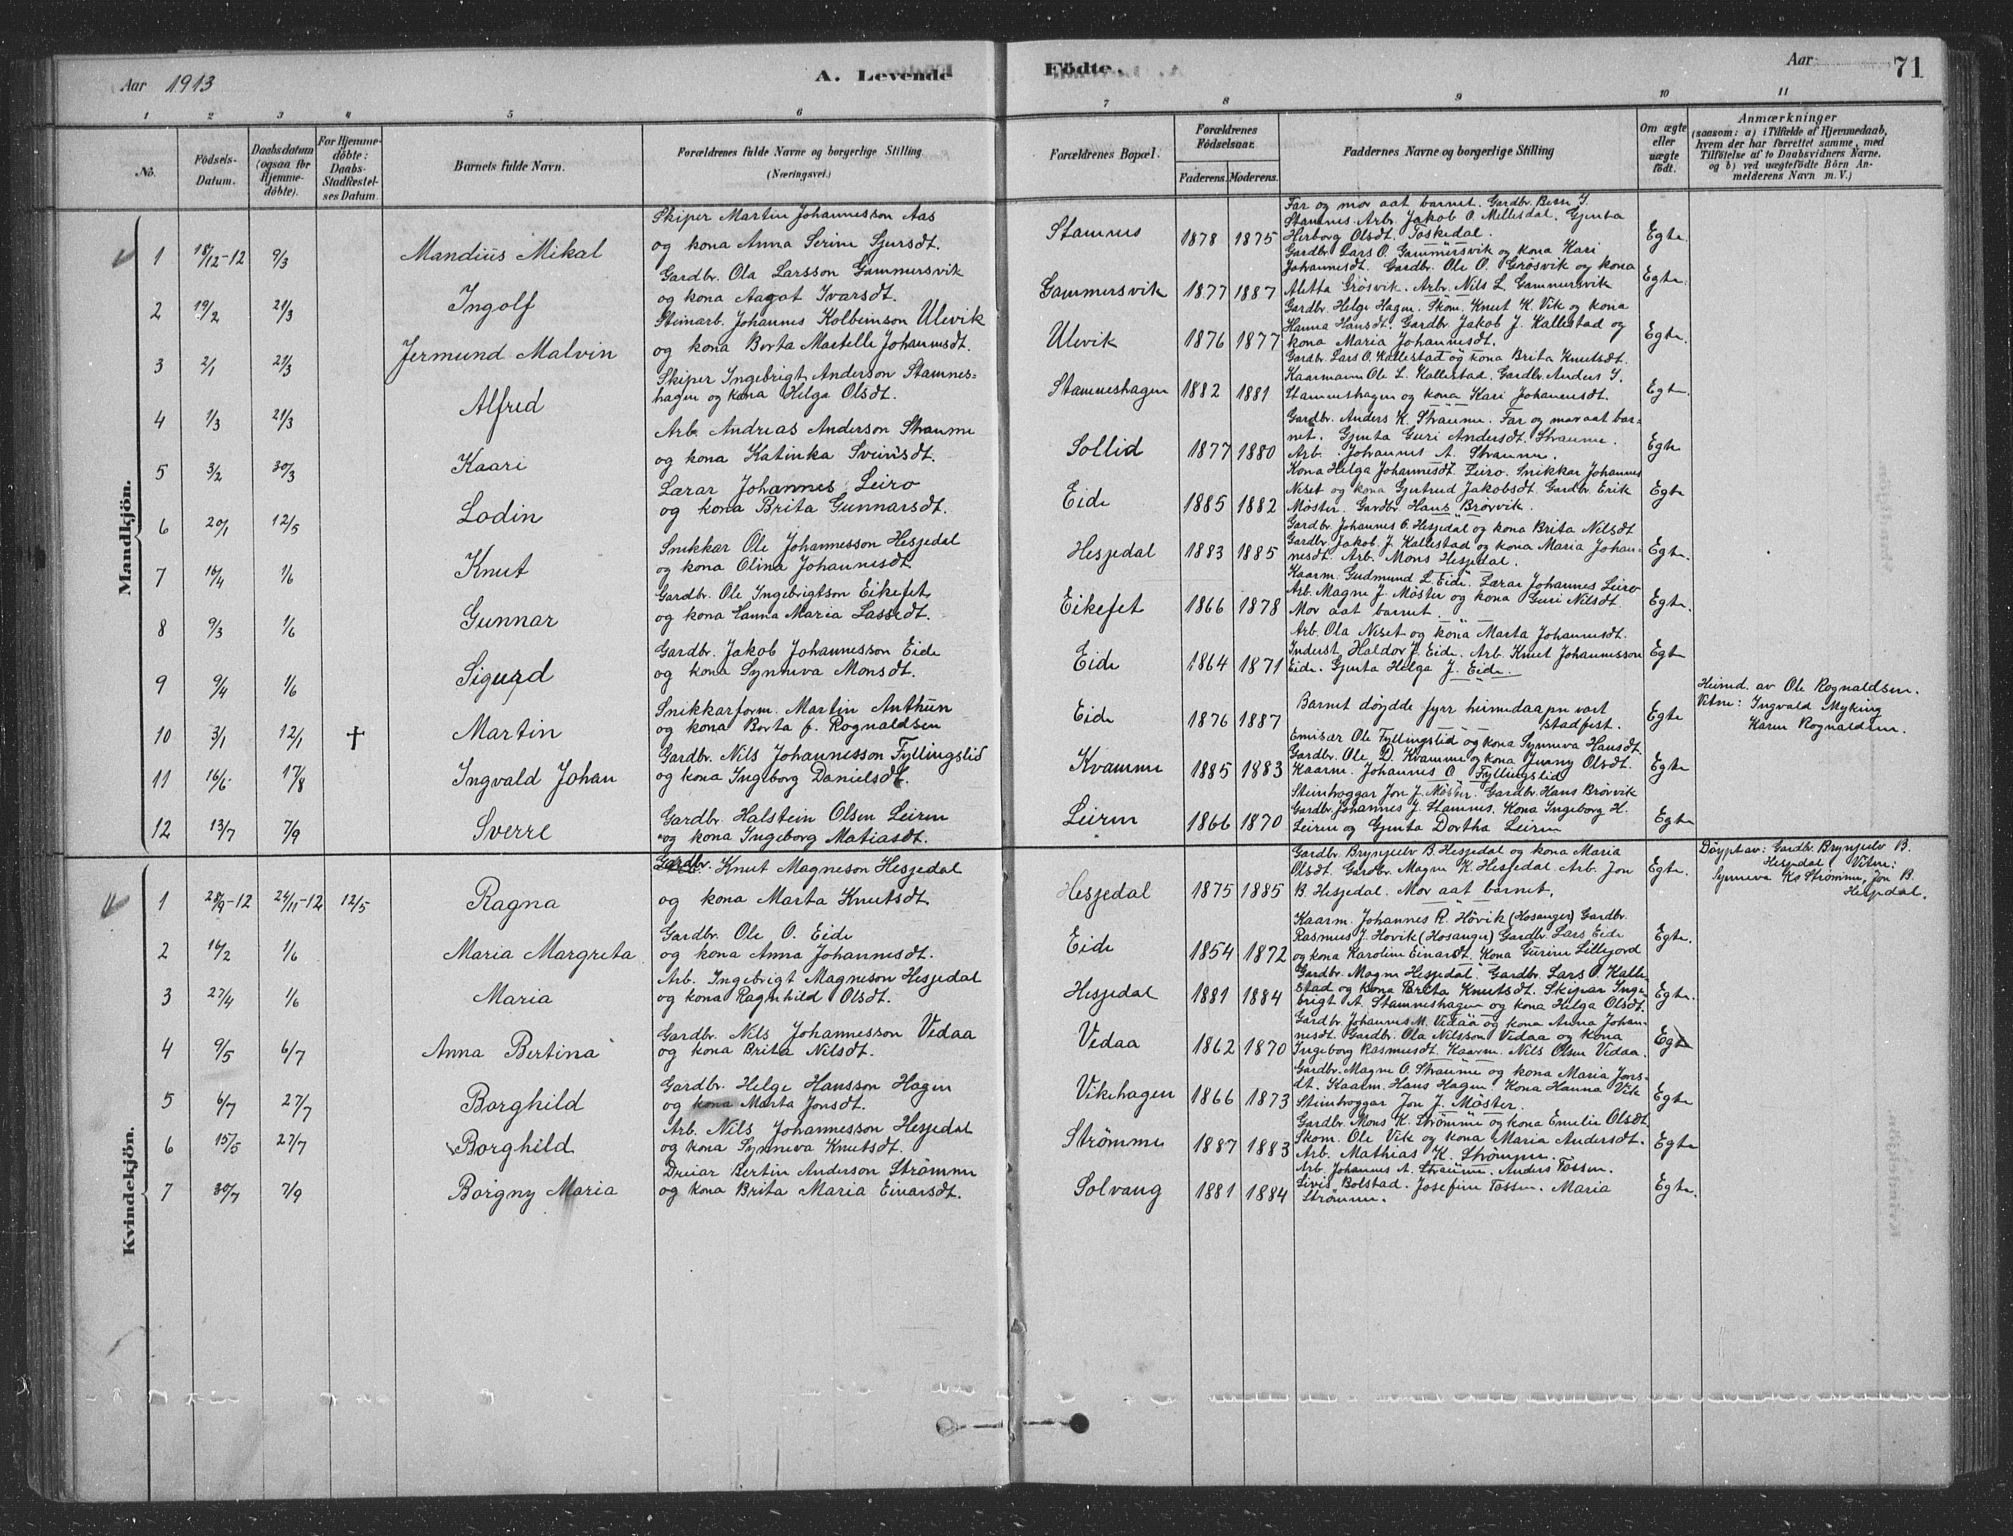 Aar 1913
A. Levende
Födte.
Aar
71
1 2 3 4 5 6 7 8 9 10 11
No.
Födsels-Datum.
Daabsdatum (ogsaa for Hjemmedöbte).
For Hjemmedöbte: Daabs-Stadfæstelses Datum.
Barnets fulde Navn.
Forældrenes fulde Navne og borgerlige Stilling
(Næringsvei.)
Forældrenes Bopæl.
Forældrenes Födselsaar.
Faderens. Moderens.
Faddernes Navne og borgerlige Stilling
Om ægte eller uægte födt.
Anmærkninger
(saasom: a) i Tilfælde af Hjemmedaab, hvem der har forrettet samme, med Tilföielse af to Daabsvidners Navne, og b) ved uægtefödte Börn Anmelderens Navn m. V.)
Mandkjön.
1 18/12-12 9/3 Mandius Mikal
Skiper Martin Johannesson Aas
og kona Anna Serine Sjursdt.
Stamnes 1878 1875
Far og mor aat barnet. Gardbr. Berse I.
Stamnes. Arb. Jakob O. Mellesdal. Gjenta
Herborg Olsdt. Toskedal.
Egte
2 19/2 21/3 Ingolf
Gardbr. Ola Larsson Gammersvik
og kona Aagot Ivarsdt.
Gammersvik 1877 1887
Gardbr. Lars O. Gammersvik og kona Kari
Johannesdt. Gardbr. Ole O. Grøsvik og kona
Aletta Grøsvik. Arb. Nils L. Gammersvik
Egte.
3 2/1 21/3 Jermund Malvin
Steinarb. Johannes Kolbeinson Ulevik
og kona Berta Martelle Johannesdt.
Ulevik 1876 1877
Gardbr. Helge Hagen. Skom. Knut K. Vik og kona
Hanna Hansdt. Gardbr. Jakob J. Kallestad og
kona Maria Johannesdt.
Egte.
4 1/3 21/3 Alfred
Skiper Ingebrigt Anderson Stamnes-
hagen og kona Helga Olsdt.
Stamneshagen 1882 1881
Gardbr. Lars O. Kallestad og kona Brita Knutsdt.
Kaarmann Ole L. Kallestad. Gardbr. Anders I.
Stamneshagen og kona Kari Johannesdt.
Egte.
5 3/2 30/3 Kaari
Arb. Andreas Anderson Straume
og kona Katinka Sveinsdt.
Sollid 1877 1880
Gardbr. Anders K. Straume. Far og mor aat bar-
net. Gjenta Guri Andersdt. Straume.
Arb. Johannes A. Straume.
Egte
6 20/1 12/5 Lodin
Lærar Johannes Leiro
og kona Brita Gunnarsdt.
Eide 1885 1882
Kona Helga Johannesdt. Leiro. Snikkar Johannes
Neset og kona Gjertrud Jakobsdt. Gardbr. Erik
Møster. Gardbr. Hans Brørvik.
Egte
7 16/4 1/6 Knut
Snikkar Ole Johannesson Hesjedal
og kona Olina Johannesdt.
Hesjedal 1883 1885
Gardbr. Johannes O. Hesjedal og kona Brita Nilsdt
Gardbr. Jakob J. Kallestad og kona Maria Johan-
nesdt. Arb. Mons Hesjedal.
Egte.
8 9/3 1/6 Gunnar
Gardbr. Ole Ingebrigtson Eikefet
og kona Hanna Maria Lassedt.
Eikefet 1866 1878
Kaarm. Gudmund L. Eide. Lærar Johannes Leiro
Arb. Magne J. Møster og kona Guri Nilsdt
Mor aat barnet.
Egte.
9 9/4 1/6 Sigurd
Gardbr. Jakob Johannesson Eide
og kona Synneva Monsdt.
Eide 1864 1871
Arb. Ola Neset og kona Marta Johannesdt.
Inderst Haldor J. Eide. Arb. Knut Johannesson
Eide. Gjenta Helga J. Eide.
Egte
10 3/1 12/1 † Martin
Snikkarform. Martin Anthun
og kona Berta f. Rognaldsen
Eide 1876 1887
Barnet døydde fyrr heimedaapen vart
stadfest.
Egte
Heimd. av Ole Rognaldsen.
Vitne: Ingvald Myking
Karen Rognaldsen.
11 16/6 17/8 Ingvald Johan
Gardbr. Nils Johannesson Fyllingslid
og kona Ingeborg Danielsdt.
Kvamme 1885 1883
Emisær Ole Fyllingslid og kona Synneva Hansdt.
Gardbr. Ole D. Kvamme og kona Jenny Olsdt.
Kaarm. Johannes O. Fyllingslid
Egte
12 13/7 7/9 Sverre
Gardbr. Halstein Olsen Leiren
og kona Ingeborg Matiasdt.
Leiren 1866 1870
Steinhoggar Jon J. Møster. Gardbr. Hans Brørvik
Gardbr. Johannes J. Stamnes. Kona Ingeborg H.
Leiren og Gjenta Dortha Leiren
Egte
Kvindekjön.
1 28/9-12 24/11-12 12/5 Ragna
Gardbr. Knut Magneson Hesjedal
og kona Marta Knutsdt.
Hesjedal 1875 1885
Gardbr. Brynjulv B. Hesjedal og kona Maria
Olsdt. Gardbr. Magne K. Hesjedal. Arb. Jon
B. Hesjedal. Mor aat barnet.
Egte.
Døypt av: Gardbr. Brynjulv B.
Hesjedal. Vitne:
Synneva Ks Strømme, Jon B.
Hesjedal.
2 16/2 1/6 Maria Margreta
Gardbr. Ole O. Eide
og kona Anna Johannesdt.
Eide 1854 1872
Kaarm. Johannes R. Høvik (Hosanger) Gardbr.
Rasmus J. Hovik (Hosanger) Gardbr. Lars Eide
og kona Karoline Einarsdt. Kona Gurine Lillejord
Egte.
3 27/4 1/6 Maria
Arb. Ingebrigt Magneson Hesjedal
og kona Ragnhild Olsdt.
Hesjedal 1881 1884
Gardbr. Magne Hesjedal. Gardbr. Lars O. Kalle-
stad og kona Brita Knutsdt. Skipar Inge-
brigt A. Stamneshagen og kona Helga Olsdt.
Egte.
4 9/5 6/7 Anna Bertina
Gardbr. Nils Johannesson Vedaa
og kona Brita Nilsdt.
Vedaa 1862 1870
Gardbr. Johannes M. Vedaa og kona Anna Johan-
nesdt. Gardbr. Ola Nilsson Vedaa og kona
Ingeborg Rasmusdt. Kaarm. Nils Olsen Vedaa.
Egte
5 6/7 27/7 Borghild
Gardbr. Helge Hansson Hagen
og kona Marta Jonsdt.
Vikehagen 1866 1873
Gardbr. Magne O. Straume og kona Maria Jons-
dt. Kaarm. Hans Hagen. Kona Hanna Vik
Steinhoggar Jon J. Møster.
Egte
6 15/5 27/7 Borghild
Arb. Nils Johannesson Hesjedal
og kona Synneva Knutsdt.
Strømme 1887 1883
Gardbr. Mons K. Strømme og kona Emelie Olsdt
Skom. Ole Vik og kona Maria Andersdt.
Arb. Mathias K. Strømme.
Egte.
7 30/7 7/9 Borgny Maria
Dreiar Bertin Anderson Strømme
og kona Brita Maria Einarsdt.
Solvang 1881 1884
Arb. Johannes A. Straume. Anders Tossen.
Sivis Bolstad. Josefine Tossen. Maria
Strømme.
Egte.